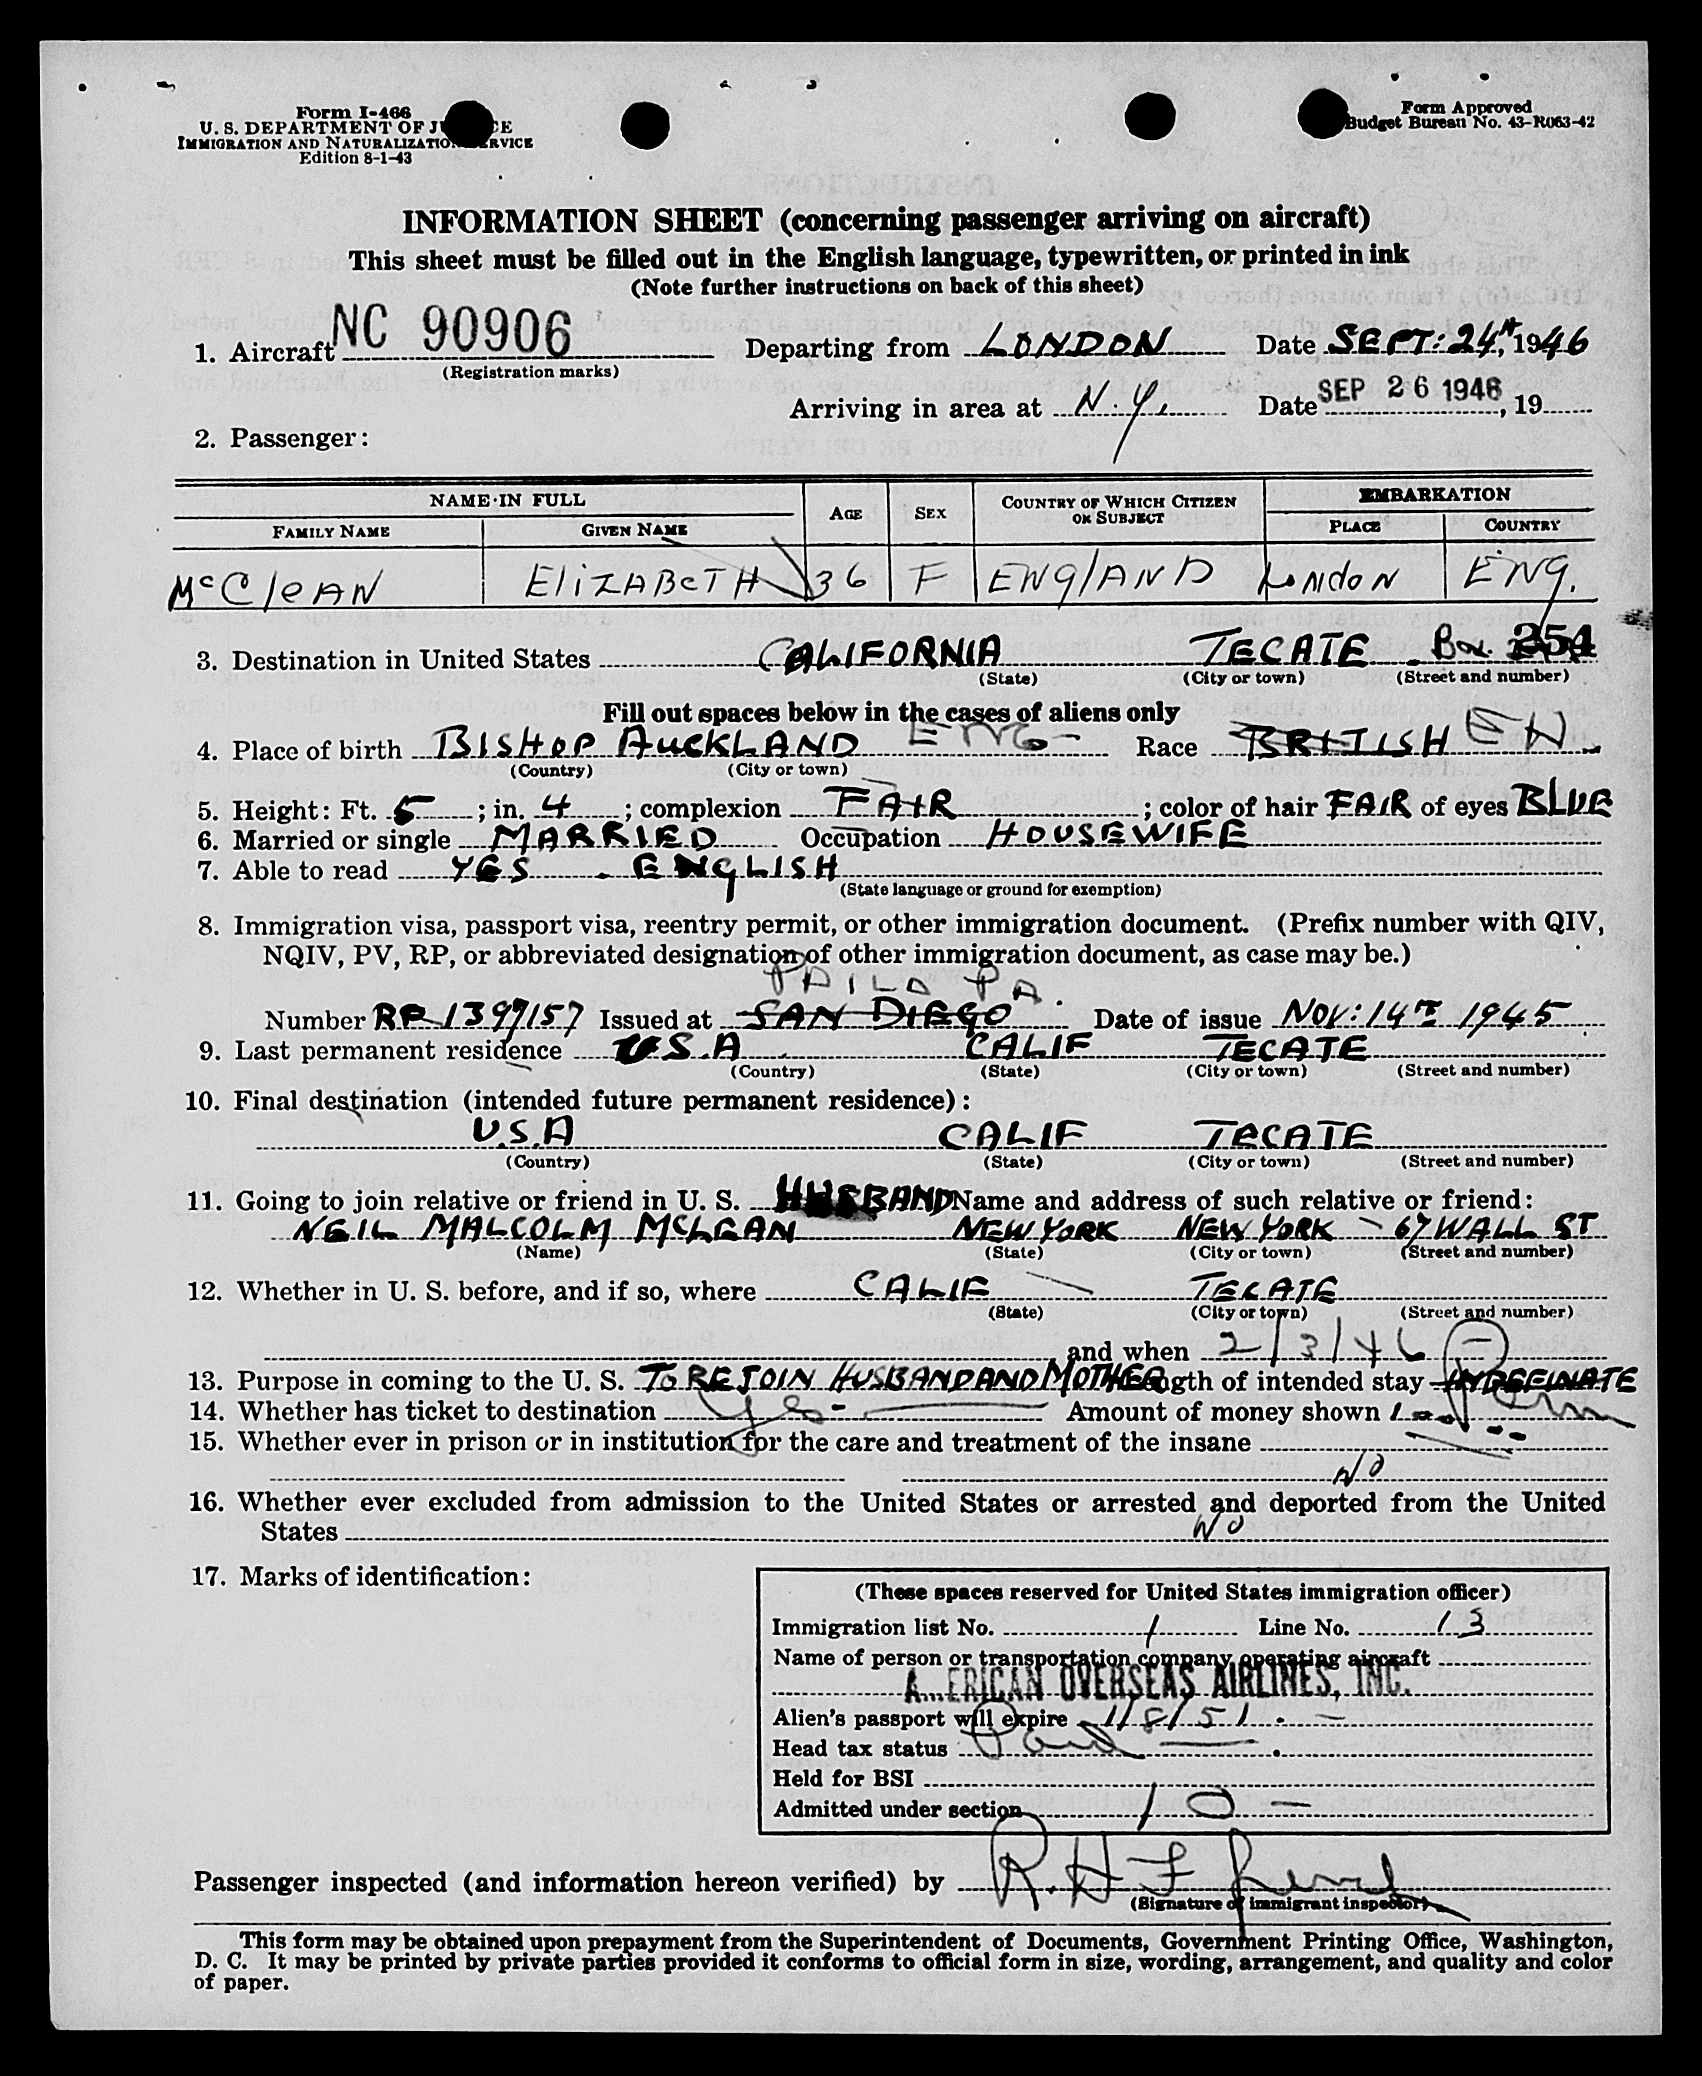 Form I-466
U. S. DEPARTMENT OF J CE
IMMIGRATION AND NATURALIZATION SERVICE
Edition 8-1-43
Form Approved
Budget Bureau No. 43-R063-42
INFORMATION SHEET (concerning passenger arriving on aircraft)
This sheet must be filled out in the English language, typewritten, or printed in ink
(Note further instructions on back of this sheet)
1. Aircraft NC 90906 Departing from LONDON Date SEPT: 24th, 1946
(Registration marks)
Arriving in area at N.Y. Date SEP 26 1946, 19
2. Passenger:
NAME IN FULL AGE SEX COUNTRY OF WHICH CITIZEN OR SUBJECT EMBARKATION
FAMILY NAME GIVEN NAME PLACE COUNTRY
McCleAN EliZABeTH 36 F ENglAND LoNdoN ENg.
3. Destination in United States CALIFORNIA TECATE Box 254
(State) (City or town) (Street and number)
Fill out spaces below in the cases of aliens only
4. Place of birth BISHOP AUCKLAND ENG- Race BRITISH EN
(Country) (City or town)
5. Height: Ft. 5; in. 4; complexion FAIR; color of hair FAIR of eyes BLUE
6. Married or single MARRIED Occupation HOUSEWIFE
7. Able to read YES. ENGLISH
(State language or ground for exemption)
8. Immigration visa, passport visa, reentry permit, or other immigration document. (Prefix number with QIV,
NQIV, PV, RP, or abbreviated designation of other immigration document, as case may be.)
PHILA PA.
Number RP 1397157 Issued at SAN DIEGO Date of issue NOV: 14TH 1945
9. Last permanent residence U.S.A. CALIF TECATE
(Country) (State) (City or town) (Street and number)
10. Final destination (intended future permanent residence):
U.S.A CALIF TECATE
(Country) (State) (City or town) (Street and number)
11. Going to join relative or friend in U. S. HUSBAND Name and address of such relative or friend:
NEIL MALCOLM MCLEAN NEW YORK NEW YORK - 67 WALL ST
(Name) (State) (City or town) (Street and number)
12. Whether in U. S. before, and if so, where CALIF TECATE
(State) (City or town) (Street and number)
and when 2/3/46
13. Purpose in coming to the U. S. TO REJOIN HUSBAND AND MOTHER Length of intended stay INDEFINATE Perm
14. Whether has ticket to destination Yes- Amount of money shown
15. Whether ever in prison or in institution for the care and treatment of the insane
NO
16. Whether ever excluded from admission to the United States or arrested and deported from the United
States NO
17. Marks of identification:
(These spaces reserved for United States immigration officer)
Immigration list No. 1 Line No. 13
Name of person or transportation company operating aircraft
A ERICAN OVERSEAS AIRLINES, INC.
Alien's passport will expire 1/8/51. -
Head tax status Paid
Held for BSI
Admitted under section 10 -
Passenger inspected (and information hereon verified) by R.H.F.
(Signature of immigrant inspector)
This form may be obtained upon prepayment from the Superintendent of Documents, Government Printing Office, Washington,
D. C. It may be printed by private parties provided it conforms to official form in size, wording, arrangement, and quality and color
of paper.